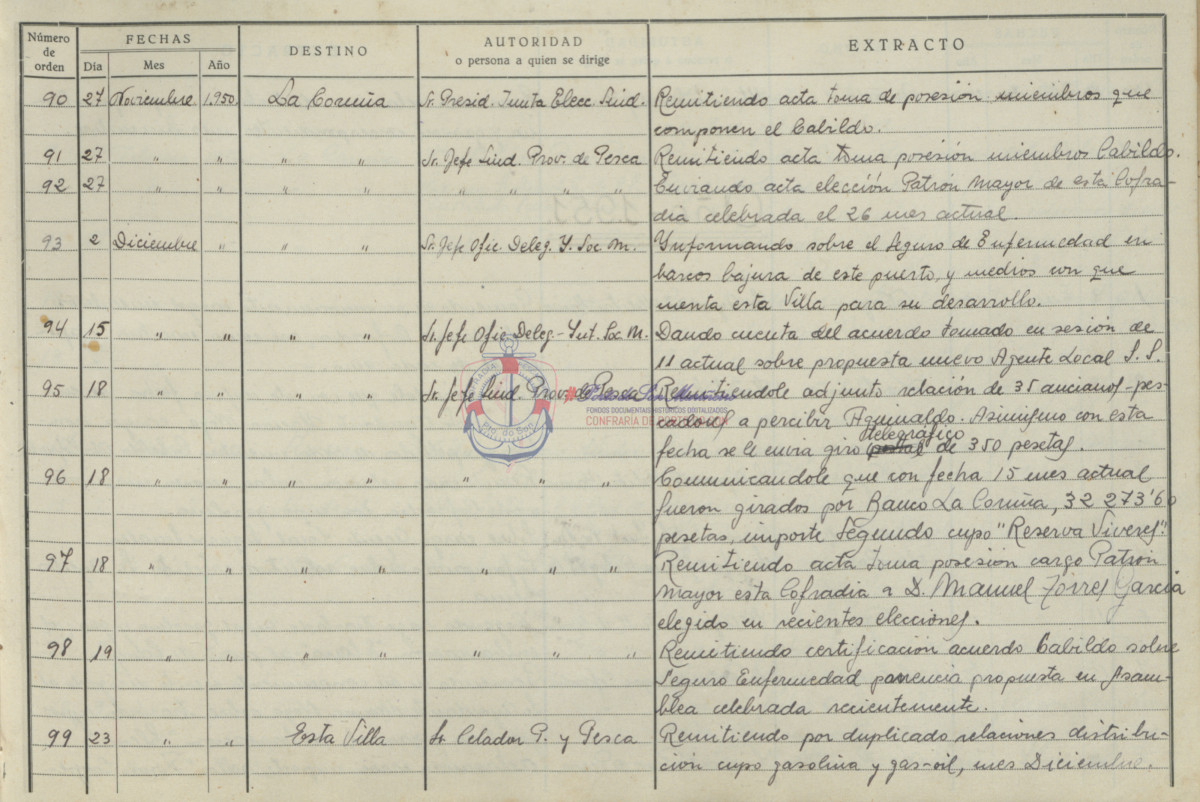 Número de orden FECHAS DESTINO AUTORIDAD o persona a quien se dirige EXTRACTO
Día Mes Año
90 27 Noviembre 1.950. La Coruña Sr. Presid. Junta Elecc. Sind. Remitiendo acta toma de posesión miembros que
componen el Cabildo.
91 27 " " " " Sr. Jefe Sind. Prov. de Pesca Remitiendo acta toma posesión miembros Cabildo.
92 27 " " " " " " " " Enviando acta elección Patrón Mayor de esta Cofra-
dia celebrada el 26 mes actual.
93 2 Diciembre " " " Sr. Jefe Ofic. Deleg. Y. Soc. M. Ynformando sobre el Seguro de Enfermedad en
barcos bajura de este puerto, y medios con que
menta esta Villa para su desarrollo.
94 15 " " " " Sr. Jefe Ofic. Deleg.- Yut. Soc. M. Dando cuenta del acuerdo tomado en sesión de
11 actual sobre propuesta nuevo Agente Local S. S.
95 18 " " " " Sr. Jefe Sind. Prov. de Pesca Remitiendole adjunto relación de 35 ancianos-pes-
cadores a percibir Aguinaldo. Asimismo con esta
telegráfico
fecha se le envia giro postal de 350 pesetas.
96 18 " " " " " " " Comunicandole que con fecha 15 mes actual
fueron girados por Banco La Coruña, 32 273'60
pesetas, importe Segundo cupo "Reserva Viveres".
97 18 " " " " " " " Remitiendo acta toma posesión cargo Patrón
Mayor esta Cofradia a D. Manuel Torres García
elegido en recientes elecciones.
98 19 " " " " " " " Remitiendo certificación acuerdo Cabildo sobre
Seguro Enfermedad ponencia propuesta en Asam-
blea celebrada recientemente.
99 23 " " Esta Villa Sr. Celador P. y Pesca Remitiendo por duplicado relaciones distribu-
cion cupo gasolina y gas-oil, mes Diciembre.
Pto. do Son
FONDOS DOCUMENTAIS HISTÓRICOS DIGITALIZADOS
CONFRARÍA DE PORTO DO SON